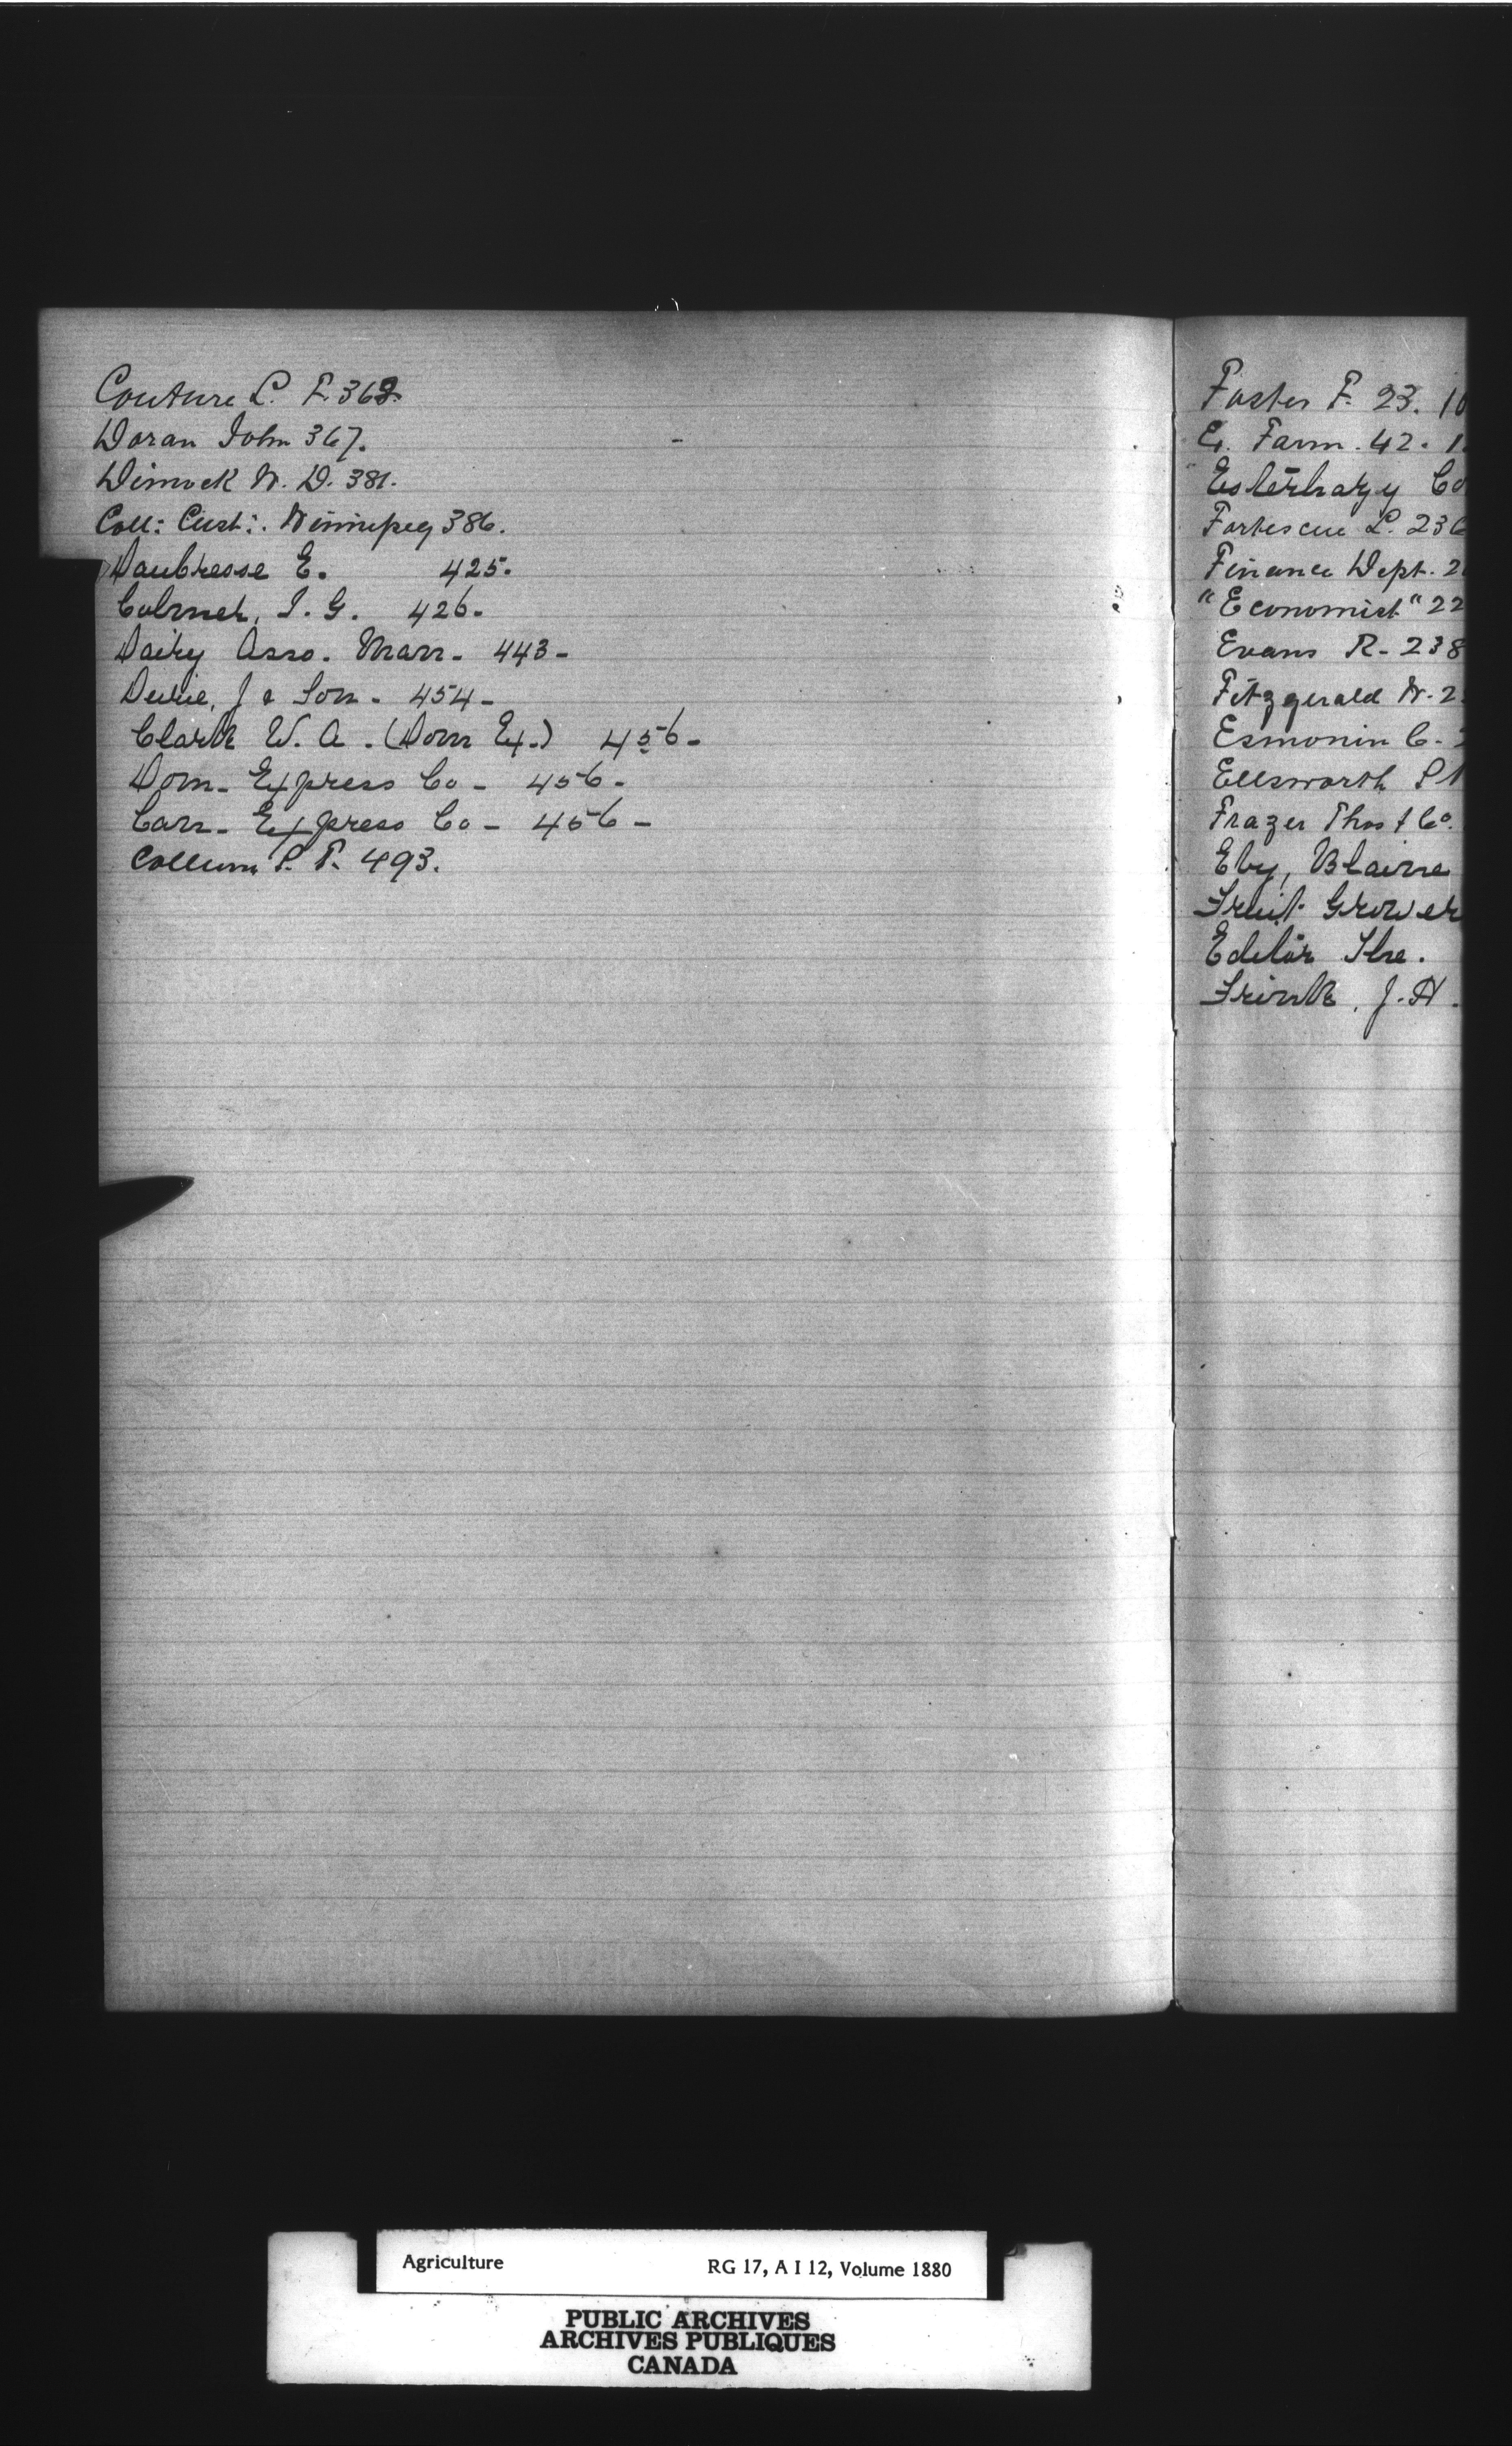 Couture L. F. 368.
Doran John 367.
Dimock W. D. 381.
Coll: Cust:. Winnipeg 386.
Daubresse E. 425.
Colmer, J. G. 426-
Dairy Asso. Man- 443-
J & Son - 454-
Clark W. A. (Dom Ex.) 456-
Dom- Express Co - 456-
Can- Express Co - 456-
Collum P. T. 493.
Foster F. 23. 10
E. Farm. 42. 1
Esterhazy Co
Fortescue L. 236
Finance Dept. 2
"Economist" 22
Evans R- 238
Fitzgerald W. 2
Esmonin C-
Ellsworth
Frazer Thos & Co.
Eby, Blaine
Fruit Grower
Editor The.
Frink, J. H.
Agriculture RG 17, A I 12, Volume 1880
PUBLIC ARCHIVES
ARCHIVES PUBLIQUES
CANADA